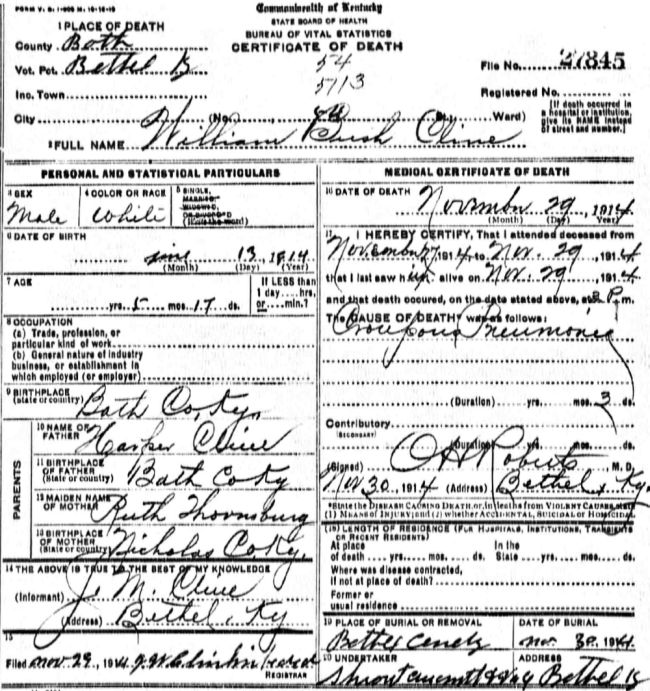 FORM V. S. 1-
Commonwealth of Kentucky
STATE BOARD OF HEALTH
BUREAU OF VITAL STATISTICS
CERTIFICATE OF DEATH
1 PLACE OF DEATH
County Bath
Vot. Pct. Bethel
54
5713
File No. 27845
Inc. Town
Registered No.
City (No. St. Ward)
[If death occurred in a hospital or institution, give its NAME instead of street and number.]
2 FULL NAME William Rush Cline
PERSONAL AND STATISTICAL PARTICULARS
3 SEX
Male
4 COLOR OR RACE
White
5 SINGLE, MARRIED, WIDOWED, OR DIVORCED
(Write the word)
6 DATE OF BIRTH
13, 1914
(Month) (Day) (Year)
7 AGE
yrs. 5 mos. 17 ds.
If LESS than 1 day....hrs. or....min.?
8 OCCUPATION
(a) Trade, profession, or
particular kind of work
(b) General nature of industry
business, or establishment in
which employed (or employer)
9 BIRTHPLACE
(State or country) Bath Co. Ky.
PARENTS
10 NAME OF
FATHER Harper Cline
11 BIRTHPLACE
OF FATHER
(State or country) Bath Co Ky
12 MAIDEN NAME
OF MOTHER Ruth Thornsburg
13 BIRTHPLACE
OF MOTHER
(State or country) Nicholas Co Ky.
14 THE ABOVE IS TRUE TO THE BEST OF MY KNOWLEDGE
(Informant) J. M. Cline
(Address) Bethel, Ky
15
Filed Nov. 29, 1914
REGISTRAR
MEDICAL CERTIFICATE OF DEATH
16 DATE OF DEATH
Novmbn 29, 1914
(Month) (Day) (Year)
17 I HEREBY CERTIFY, That I attended deceased from
Novemb 27 1914 to Nov. 29, 1914
that I last saw him alive on Nov. 29, 1914
and that death occured, on the date stated above, at 8 P. m.
The CAUSE OF DEATH was as follows:
Croupous Pneumonia
(Duration) yrs. mos. 3 ds.
Contributory
(SECONDARY)
(Duration) yrs. mos. ds.
(Signed) O H Roberts M. D.
Nov 30, 1914 (Address) Bethel, Ky.
*State the DISEASE CAUSING DEATH, or, in deaths from VIOLENT CAUSES, state
(1) MEANS OF INJURY; and (2) whether ACCIDENTAL, SUICIDAL or HOMICIDAL
18 LENGTH OF RESIDENCE (FOR HOSPITALS, INSTITUTIONS, TRANSIENTS
OR RECENT RESIDENTS)
At place In the
of death yrs. mos. ds. State yrs. mos. ds.
Where was disease contracted,
if not at place of death?
Former or
usual residence
19 PLACE OF BURIAL OR REMOVAL
Bethel
DATE OF BURIAL
Nov. 30, 1914
20 UNDERTAKER
ADDRESS
Bethel